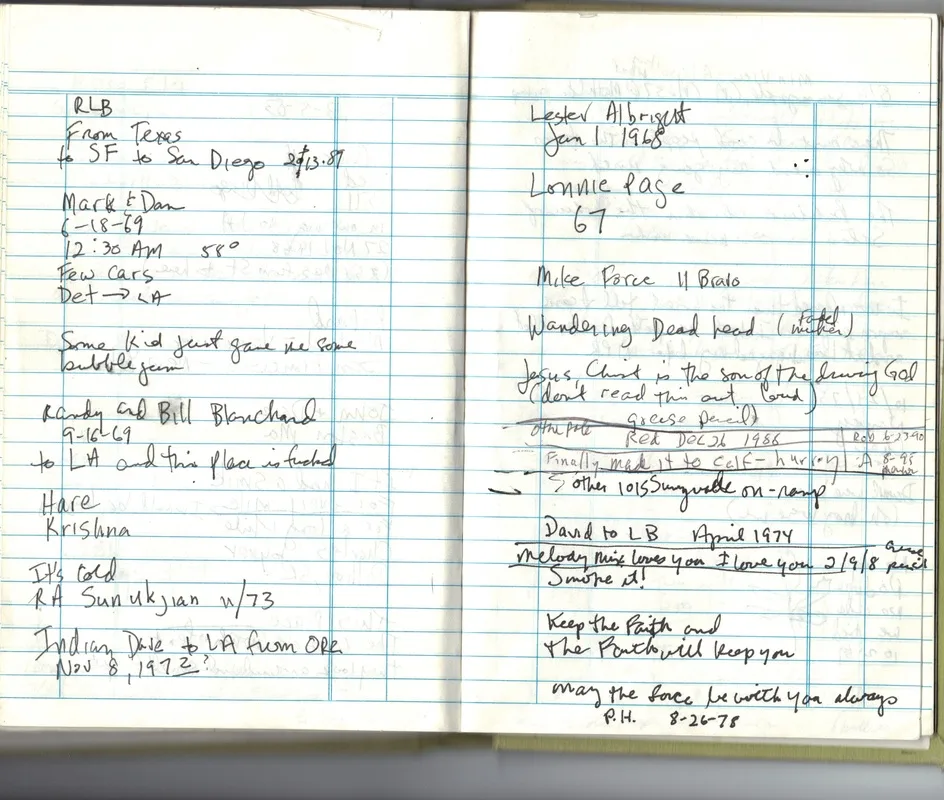 RLB
From Texas
to SF to San Diego $13.87
Mark & Dan
6-18-69
12:30 AM 58°
Few cars
Det → LA
Some kid just gave me some
bubble gum
Randy and Bill Blanchard
9-16-69
to LA and this place is fucked
Hare
Krishna
It's cold
RA Sunukjian 11/73
Indian Dave to LA from ORE
Nov 8, 1972?
Lester Albright
Jan 1 1968
Lonnie Page
67
Mike Force 11 Bravo
Wandering Dead head (
marker)
Jesus Christ is the son of the driving God
(don't read this out loud)
grease pencil)
other pole Red Dec 26 1986 Rob 6-27-90
Finally made it to calif- hurray A 8-98
other 101S Sunnyvale on-ramp
David to LB April 1974
Melody Mix loves you I love you 2/9/8 grease pencil
Smoke it!
Keep the Faith and
the Faith will keep you
may the force be with you always
P.H. 8-26-78